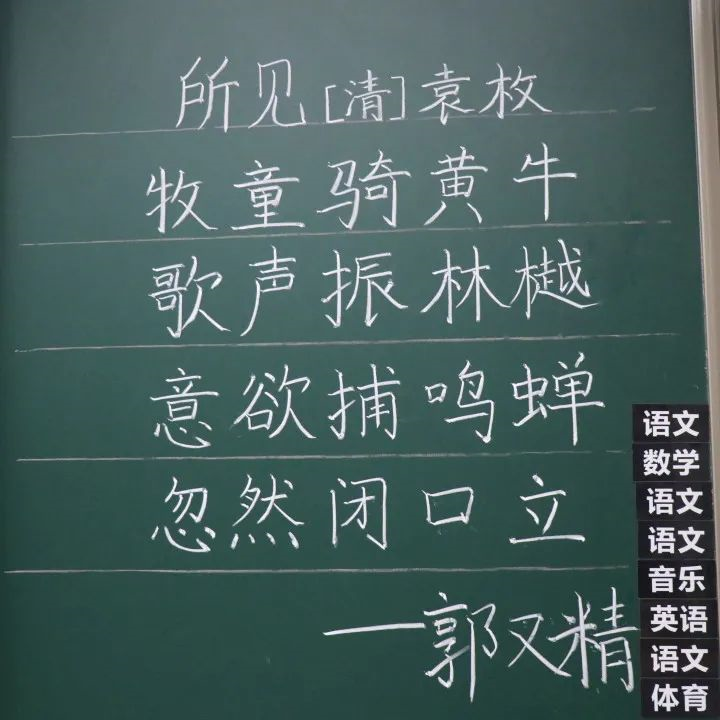 所见[清]袁枚
牧童骑黄牛
歌声振林樾
意欲捕鸣蝉
忽然闭口立
—郭又精
语文
数学
语文
语文
音乐
英语
语文
体育